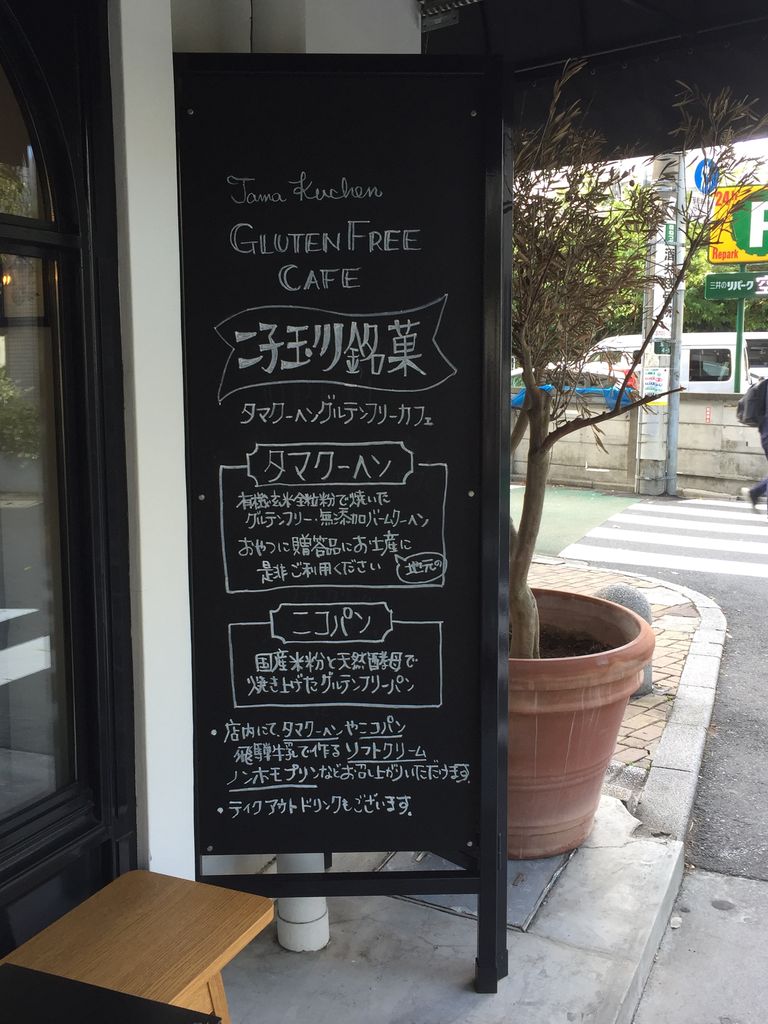 Tama Kuchen
GLUTEN FREE
CAFE
二子玉川銘菓
タマクーヘングルテンフリーカフェ
タマクーヘン
有機玄米全粒粉で焼いた
グルテンフリー・無添加バームクーヘン
おやつに贈答品にお土産に
地元の
是非ご利用ください
ニコパン
国産米粉と天然酵母で
焼き上げたグルテンフリーパン
・店内にて、タマクーヘンやニコパン
飛騨牛乳で作るソフトクリーム
ノンホモプリンなどお召し上がりいただけます。
・テイクアウトドリンクもございます。
24h
P
Repark
三井のリパーク